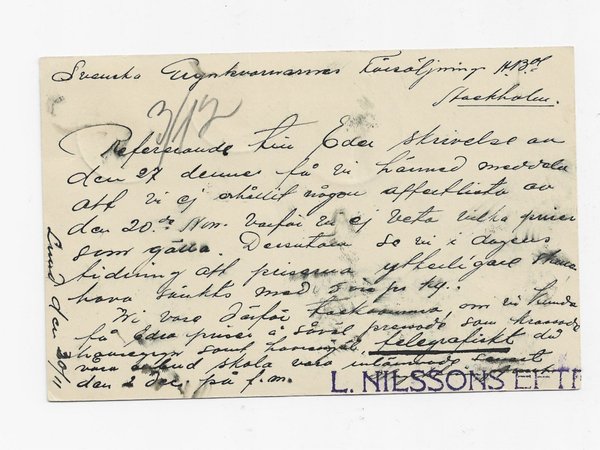 Svenska Grynkvarnarnes Försäljning
Stockholm.
3/12
Refererande till Eder skrivelse av
den 27 dennes få vi härmed meddela
att vi ej erhållit någon offertlista av
den 20de Nov. varför vi ej veta vilka priser
som gälla. Dessutom se vi i dagens
tidning att priserna ytterligare skola
hava sänkts med 3 öre pr kg.
Vi vore därför tacksamma, om vi kunde
få Edra priser å såväl som
telegrafiskt då
våra skola vara
den 2 dec. på f.m.
L. NILSSONS EFTR
Lund den 30/11